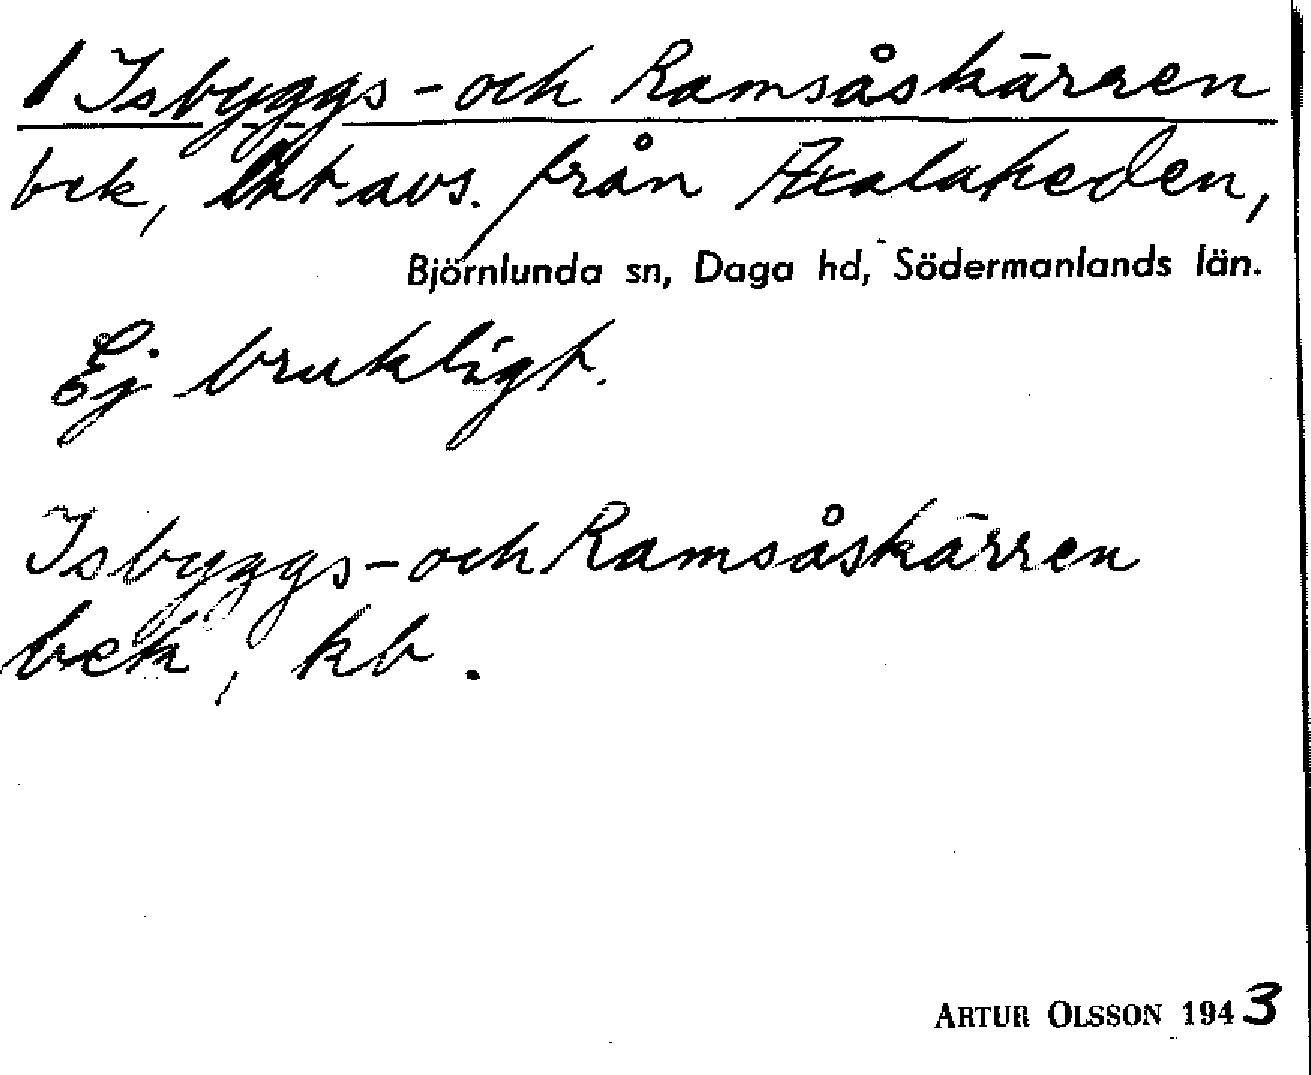 1 Isbyggs-och Ramsåskärren
bek, avs. från Axalaheden,
Björnlunda sn, Daga hd, Södermanlands län.
Ej brukligt.
Isbyggs-och Ramsåskärren
bek, kb.
ARTUR OLSSON 1943